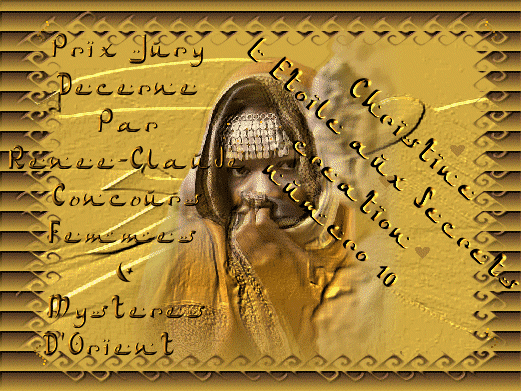 Prix Jury
Decerne
Par
Renee-Claude
Concours
Femmes
Mysteres
D'Orient
L'Etoile aux Secrets
Christine
creation
numero 10